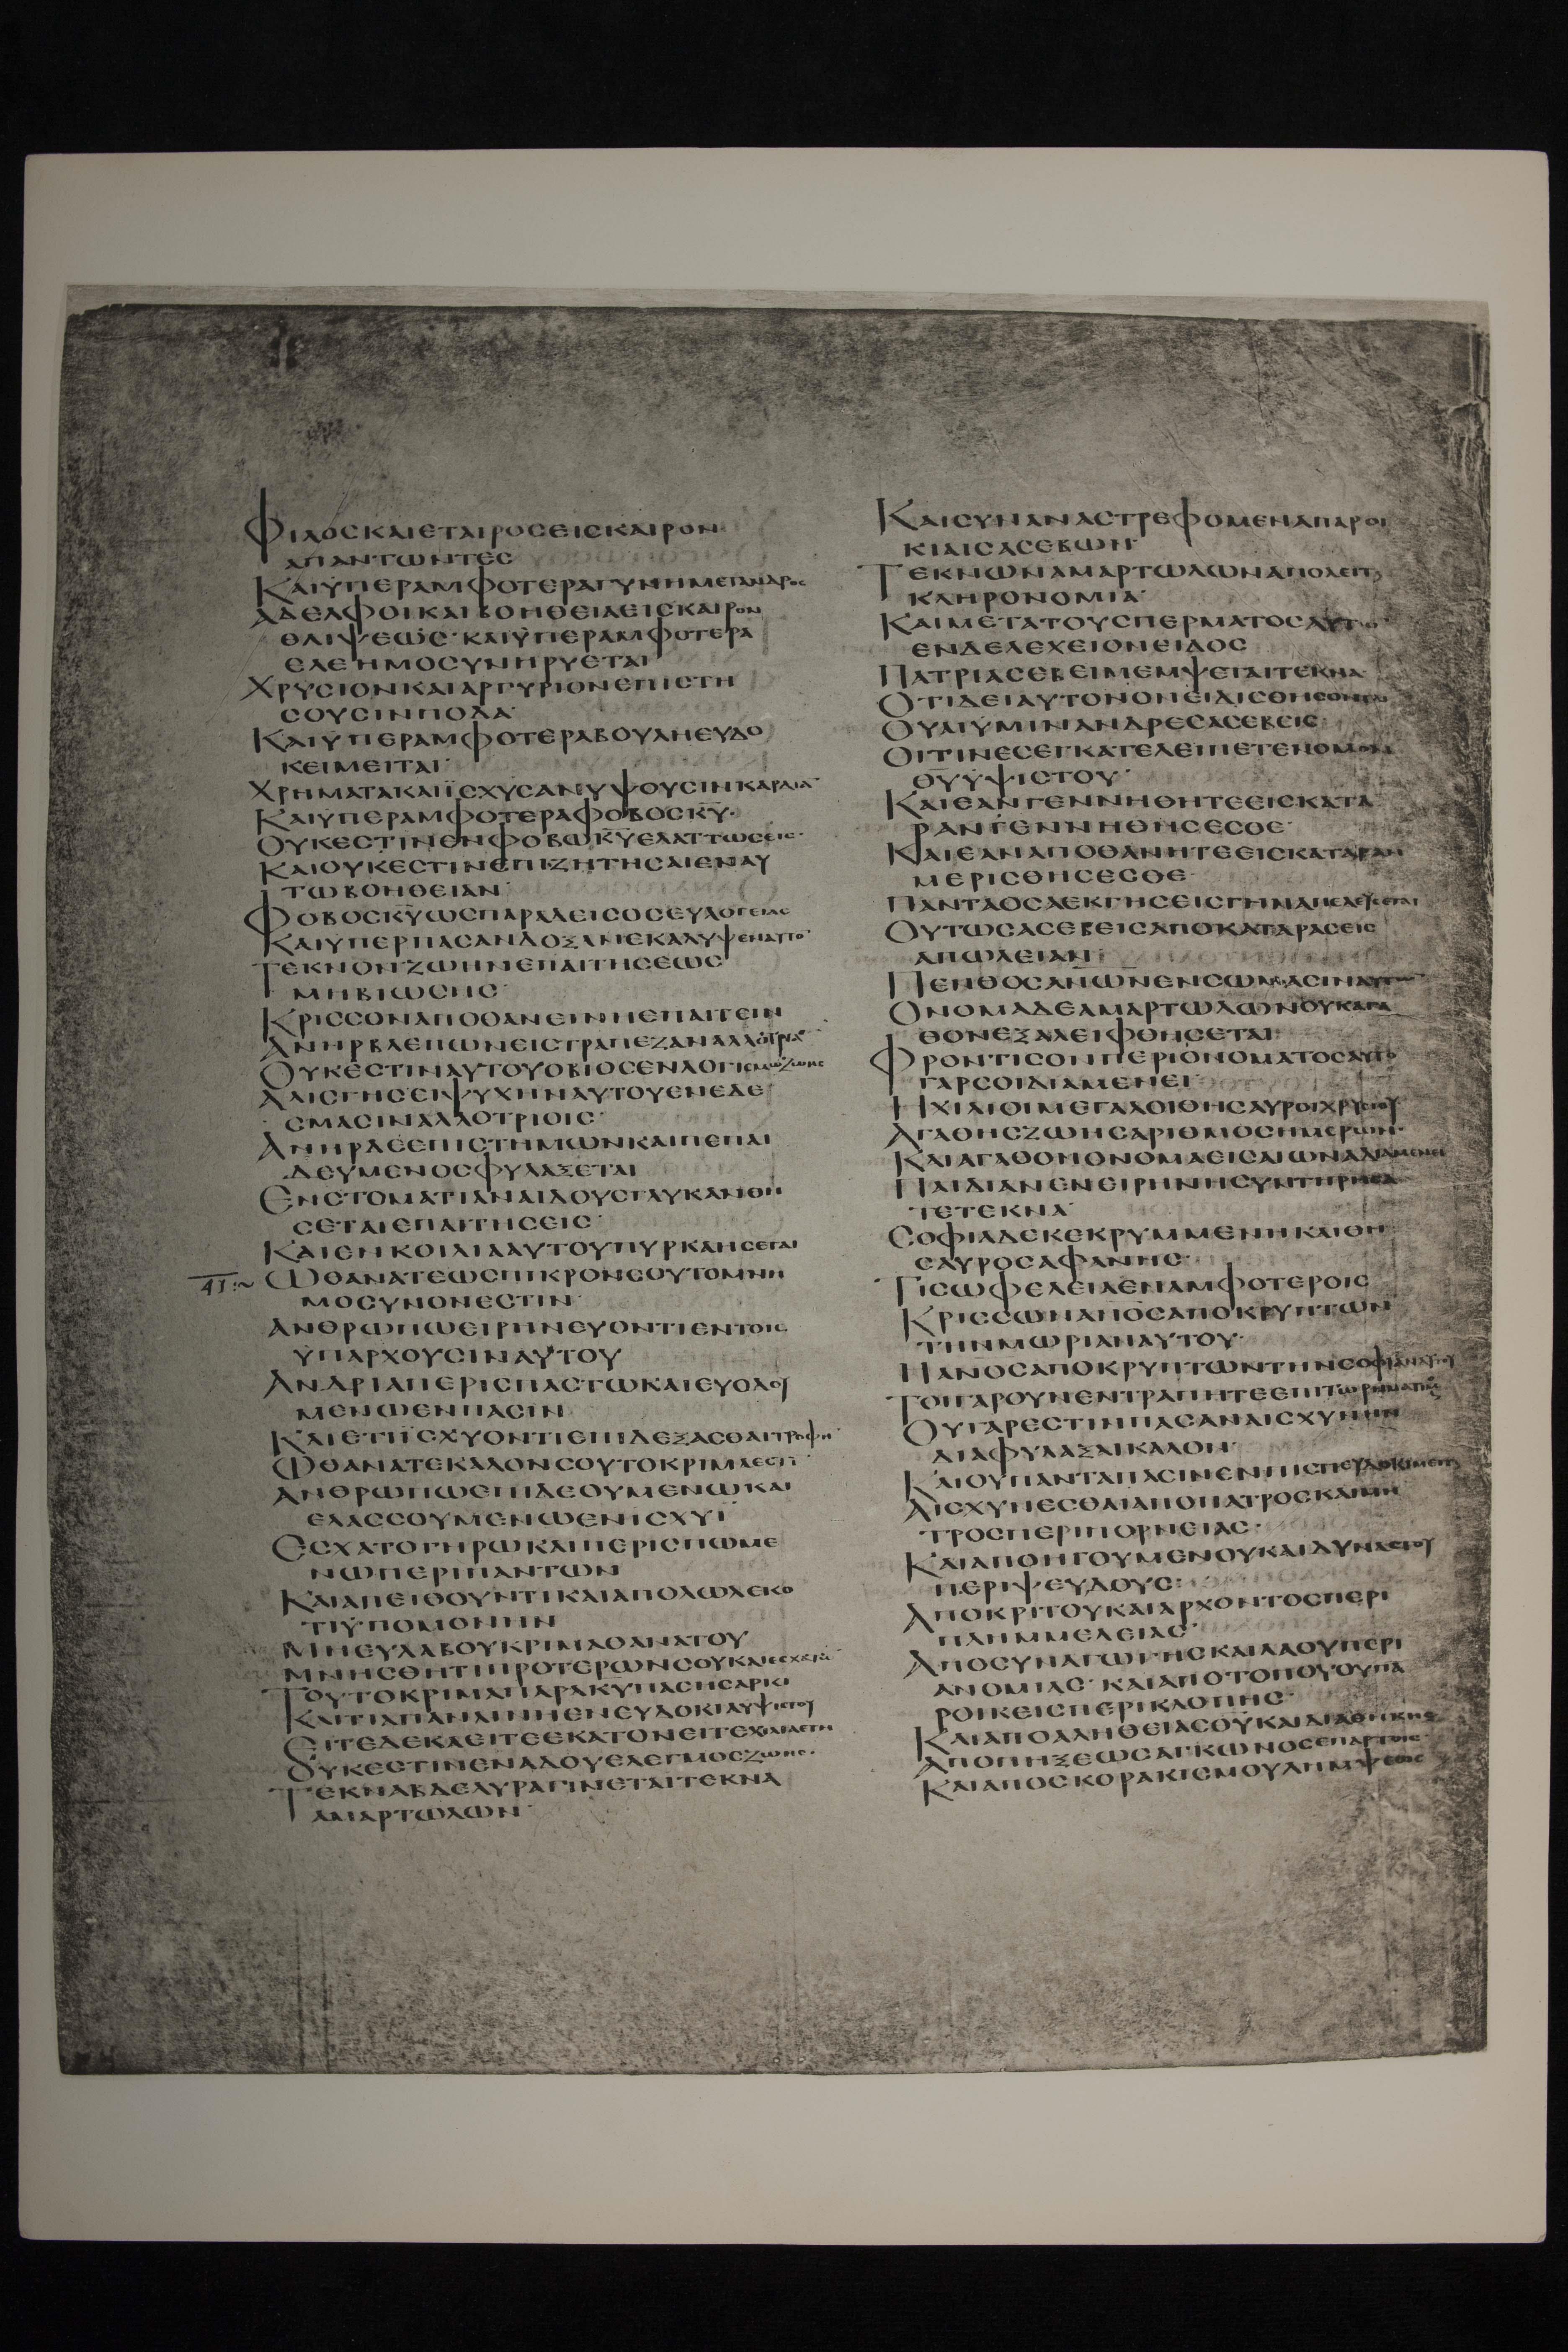 ΦΙΛΟΣΚΑΙΕΤΑΙΡΟΣΕΙΣΚΑΙΡΟΝ
ΑΠΑΝΤΩΝΤΕΣ
ΚΑΙΫΠΕΡΑΜΦΟΤΕΡΑΓΥΝΗΜΕΤΑΑΝΔΡΟΣ
ΑΔΕΛΦΟΙΚΑΙΒΟΗΘΕΙΑΕΙΣΚΑΙΡΟΝ
ΘΛΙΨΕΩΣ·ΚΑΙΫΠΕΡΑΜΦΟΤΕΡΑ
ΕΛΕΗΜΟΣΥΝΗΡΥΣΕΤΑΙ
ΧΡΥΣΙΟΝΚΑΙΑΡΓΥΡΙΟΝΕΠΙΣΤΗ
ΣΟΥΣΙΝΠΟΔΑ·
ΚΑΙΫΠΕΡΑΜΦΟΤΕΡΑΒΟΥΛΗΕΥΔΟ
ΚΕΙΜΕΙΤΑΙ·
ΧΡΗΜΑΤΑΚΑΙΪΣΧΥΣΑΝΥΨΟΥΣΙΝΚΑΡΔΙΑ
ΚΑΙΫΠΕΡΑΜΦΟΤΕΡΑΦΟΒΟΣΚΥ·
ΟΥΚΕΣΤΙΝΕΝΦΟΒΩΚΥΕΛΑΤΤΩΣΕΙΣ·
ΚΑΙΟΥΚΕΣΤΙΝΕΠΙΖΗΤΗΣΑΙΕΝΑΥ
ΤΩΒΟΗΘΕΙΑΝ·
ΦΟΒΟΣΚΥΩΣΠΑΡΑΔΕΙΣΟΣΕΥΛΟΓΕΙΑΣ
ΚΑΙΫΠΕΡΠΑΣΑΝΔΟΞΑΝΕΚΑΛΥΨΕΝΑΥΤΟ
ΤΕΚΝΟΝΖΩΗΝΕΠΑΙΤΗΣΕΩΣ
ΜΗΒΙΩΣΗΣ·
ΚΡΙΣΣΟΝΑΠΟΘΑΝΕΙΝΗΕΠΑΙΤΕΙΝ
ΑΝΗΡΒΛΕΠΩΝΕΙΣΤΡΑΠΕΖΑΝΑΛΛΟΤΡΙΑ
ΟΥΚΕΣΤΙΝΑΥΤΟΥΟΒΙΟΣΕΝΛΟΓΙΣΜΩΖΩΗΣ
ΑΛΙΣΓΗΣΕΙΨΥΧΗΝΑΥΤΟΥΕΝΕΔΕ
ΣΜΑΣΙΝΑΛΛΟΤΡΙΟΙΣ·
ΑΝΗΡΔΕΕΠΙΣΤΗΜΩΝΚΑΙΠΕΠΑΙ
ΔΕΥΜΕΝΟΣΦΥΛΑΞΕΤΑΙ
ΕΝΣΤΟΜΑΤΙΑΝΑΙΔΟΥΣΓΛΥΚΑΝΘΗ
ΣΕΤΑΙΕΠΑΙΤΗΣΕΙΣ·
ΚΑΙΕΝΚΟΙΛΙΑΑΥΤΟΥΠΥΡΚΑΗΣΕΤΑΙ
ΩΘΑΝΑΤΕΩΣΠΙΚΡΟΝΣΟΥΤΟΜΝΗ
ΜΟΣΥΝΟΝΕΣΤΙΝ
ΑΝΘΡΩΠΩΕΙΡΗΝΕΥΟΝΤΙΕΝΤΟΙΣ
ΫΠΑΡΧΟΥΣΙΝΑΥΤΟΥ
ΑΝΔΡΙΑΠΕΡΙΣΠΑΣΤΩΚΑΙΕΥΟΔΟΥ
ΜΕΝΩΕΝΠΑΣΙΝ
ΚΑΙΕΤΙΪΣΧΥΟΝΤΙΕΠΙΔΕΞΑΣΘΑΙΤΡΟΦΗ
ΩΘΑΝΑΤΕΚΑΛΟΝΣΟΥΤΟΚΡΙΜΑΕΣΤΙ
ΑΝΘΡΩΠΩΕΠΙΔΕΟΥΜΕΝΩΚΑΙ
ΕΛΑΣΣΟΥΜΕΝΩΕΝΙΣΧΥΪ
ΕΣΧΑΤΟΓΗΡΩΚΑΙΠΕΡΙΣΠΩΜΕ
ΝΩΠΕΡΙΠΑΝΤΩΝ
ΚΑΙΑΠΕΙΘΟΥΝΤΙΚΑΙΑΠΟΛΩΛΕΚΟ
ΤΙΫΠΟΜΟΝΗΝ
ΜΗΕΥΛΑΒΟΥΚΡΙΜΑΘΑΝΑΤΟΥ
ΜΝΗΣΘΗΤΙΠΡΟΤΕΡΩΝΣΟΥΚΑΙΕΣΧΑΤΩ
ΤΟΥΤΟΚΡΙΜΑΠΑΡΑΚΥΠΑΣΗΣΑΡΚΙ
ΚΑΙΤΙΑΠΑΝΑΙΝΗΕΝΕΥΔΟΚΙΑΥΨΙΣΤΟΥ
ΕΙΤΕΔΕΚΑΕΙΤΕΕΚΑΤΟΝΕΙΤΕΧΙΛΙΑΕΤΗ
ΟΥΚΕΣΤΙΝΕΝΑΔΟΥΕΛΕΓΜΟΣΖΩΗΣ·
ΤΕΚΝΑΒΔΕΛΥΡΑΓΙΝΕΤΑΙΤΕΚΝΑ
ΑΜΑΡΤΩΛΩΝ·
ΚΑΙΣΥΝΑΝΑΣΤΡΕΦΟΜΕΝΑΠΑΡΟΙ
ΚΙΑΙΣΑΣΕΒΩΝ·
ΤΕΚΝΩΝΑΜΑΡΤΩΛΩΝΑΠΟΛΕΙΤΑΙ
ΚΛΗΡΟΝΟΜΙΑ·
ΚΑΙΜΕΤΑΤΟΥΣΠΕΡΜΑΤΟΣΑΥΤΩ
ΕΝΔΕΛΕΧΕΙΟΝΕΙΔΟΣ
ΠΑΤΡΙΑΣΕΒΕΙΜΕΜΨΕΤΑΙΤΕΚΝΑ
ΟΤΙΔΕΙΑΥΤΟΝΟΝΕΙΔΙΣΘΗΣΟΝΤΑΙ
ΟΥΑΙΫΜΙΝΑΝΔΡΕΣΑΣΕΒΕΙΣ
ΟΙΤΙΝΕΣΕΓΚΑΤΕΛΕΙΠΕΤΕΝΟΜΟΝ
ΘΥΫΨΙΣΤΟΥ·
ΚΑΙΕΑΝΓΕΝΝΗΘΗΤΕΕΙΣΚΑΤΑ
ΡΑΝΓΕΝΝΗΘΗΣΕΣΘΕ·
ΚΑΙΕΑΝΑΠΟΘΑΝΗΤΕΕΙΣΚΑΤΑΡΑΝ
ΜΕΡΙΣΘΗΣΕΣΘΕ·
ΠΑΝΤΑΟΣΑΕΚΓΗΣΕΙΣΓΗΝΑΠΕΛΕΥΣΕΤΑΙ
ΟΥΤΩΣΑΣΕΒΕΙΣΑΠΟΚΑΤΑΡΑΣΕΙΣ
ΑΠΩΛΕΙΑΝ
ΠΕΝΘΟΣΑΝΩΝΕΝΣΩΜΑΣΙΝΑΥΤΩΝ
ΟΝΟΜΑΔΕΑΜΑΡΤΩΛΩΝΟΥΚΑΓΑ
ΘΟΝΕΞΑΛΕΙΦΘΗΣΕΤΑΙ·
ΦΡΟΝΤΙΣΟΝΠΕΡΙΟΝΟΜΑΤΟΣΑΥΤΟ
ΓΑΡΣΟΙΔΙΑΜΕΝΕΙ
ΗΧΙΛΙΟΙΜΕΓΑΛΟΙΘΗΣΑΥΡΟΙΧΡΥΣΙΟΥ
ΑΓΑΘΗΣΖΩΗΣΑΡΙΘΜΟΣΗΜΕΡΩΝ·
ΚΑΙΑΓΑΘΟΝΟΝΟΜΑΕΙΣΑΙΩΝΑΔΙΑΜΕΝΕΙ
ΠΑΙΔΙΑΝΕΝΕΙΡΗΝΗΣΥΝΤΗΡΗΣΑ
ΤΕΤΕΚΝΑ·
ΣΟΦΙΑΔΕΚΕΚΡΥΜΜΕΝΗΚΑΙΘΗ
ΣΑΥΡΟΣΑΦΑΝΗΣ·
ΤΙΣΩΦΕΛΕΙΑΕΝΑΜΦΟΤΕΡΟΙΣ
ΚΡΙΣΣΩΝΑΝΟΣΑΠΟΚΡΥΠΤΩΝ
ΤΗΝΜΩΡΙΑΝΑΥΤΟΥ·
ΗΑΝΟΣΑΠΟΚΡΥΠΤΩΝΤΗΝΣΟΦΙΑΝΑΥΤΟΥ
ΤΟΙΓΑΡΟΥΝΕΝΤΡΑΠΗΤΕΕΠΙΤΩΡΗΜΑΤΙΜΟΥ
ΟΥΓΑΡΕΣΤΙΝΠΑΣΑΝΑΙΣΧΥΝΗΝ
ΔΙΑΦΥΛΑΞΑΙΚΑΛΟΝ·
ΚΑΙΟΥΠΑΝΤΑΠΑΣΙΝΕΝΠΙΣΤΙΕΥΔΟΚΙΜΕΙΤΑΙ
ΑΙΣΧΥΝΕΣΘΑΙΑΠΟΠΑΤΡΟΣΚΑΙΜΗ
ΤΡΟΣΠΕΡΙΠΟΡΝΕΙΑΣ·
ΚΑΙΑΠΟΗΓΟΥΜΕΝΟΥΚΑΙΔΥΝΑΣΤΟΥ
ΠΕΡΙΨΕΥΔΟΥΣ·
ΑΠΟΚΡΙΤΟΥΚΑΙΑΡΧΟΝΤΟΣΠΕΡΙ
ΠΛΗΜΜΕΛΕΙΑΣ·
ΑΠΟΣΥΝΑΓΩΓΗΣΚΑΙΛΑΟΥΠΕΡΙ
ΑΝΟΜΙΑΣ·ΚΑΙΑΠΟΤΟΠΟΥΟΥΠΑ
ΡΟΙΚΕΙΣΠΕΡΙΚΛΟΠΗΣ·
ΚΑΙΑΠΟΑΛΗΘΕΙΑΣΘΥΚΑΙΔΙΑΘΗΚΗΣ
ΑΠΟΠΗΞΕΩΣΑΓΚΩΝΟΣΕΠΑΡΤΟΙΣ
ΚΑΙΑΠΟΣΚΟΡΑΚΙΣΜΟΥΛΗΜΨΕΩΣ